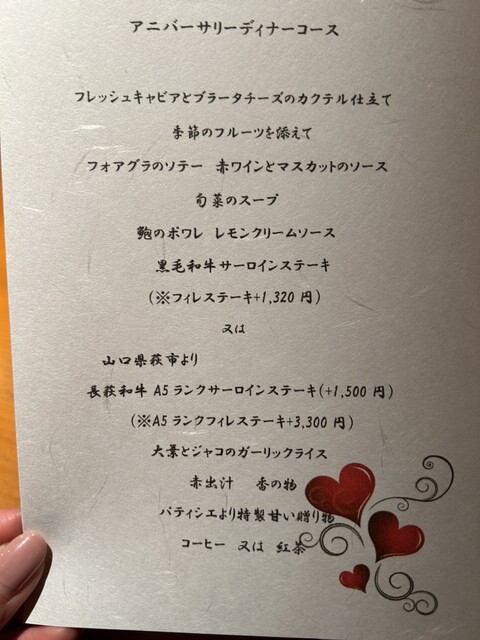 アニバーサリーディナーコース
フレッシュキャビアとブラータチーズのカクテル仕立て
季節のフルーツを添えて
フォアグラのソテー　赤ワインとマスカットのソース
旬菜のスープ
鮑のポワレ　レモンクリームソース
黒毛和牛サーロインステーキ
(※フィレステーキ+1,320 円)
又は
山口県萩市より
長萩和牛 A5 ランクサーロインステーキ(+1,500 円)
(※A5 ランクフィレステーキ+3,300 円)
大葉とジャコのガーリックライス
赤出汁　香の物
パティシエより特製甘い贈り物
コーヒー　又は　紅茶